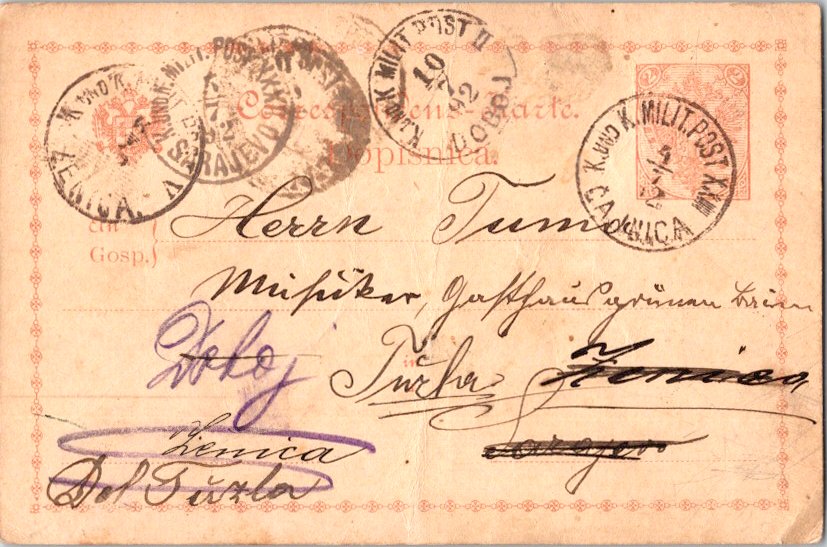 K. UND K. MILIT. POST II
10 92
DOBOJ
K. UND K. MILIT. POST XXIII
ČAJNICA
K. UND K.
ZENICA.
K. UND K. MILIT. POST
SARAJEVO
Correspondenz-Karte.
Dopisnica.
2
an
Gosp.
Herrn Tumo
Musiker, Gasthaus grünen
Doboj
in
Tuzla Zenica
Sarajevo
Zenica
Dol Tuzla